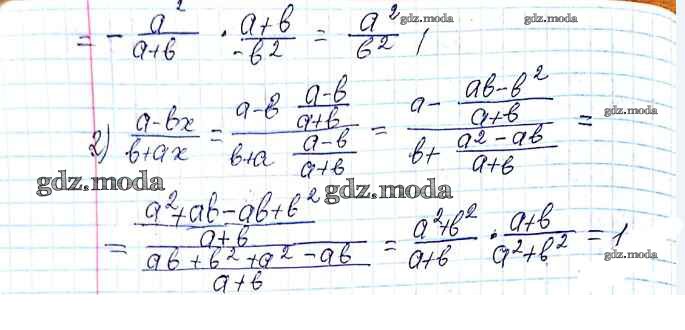 = - a²/(a+b) · (a+b)/(-b²) = a²/b² ; gdz.moda
2) (a-bx)/(b+ax) = (a-b (a-b)/(a+b))/(b+a (a-b)/(a+b)) = (a- (ab-b²)/(a+b))/(b+ (a²-ab)/(a+b)) = gdz.moda
gdz.moda gdz.moda
= ((a²+ab-ab+b²)/(a+b))/((ab+b²+a²-ab)/(a+b)) = (a²+b²)/(a+b) · (a+b)/(a²+b²) = 1 gdz.moda